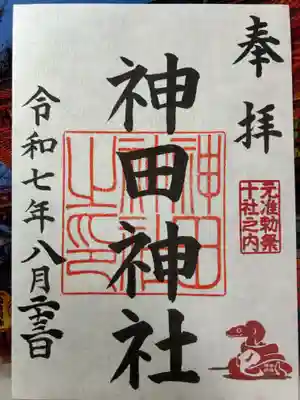 奉拝
元准勅祭
十社之内
神田神社
神田
神社
之印
令和七年八月二十三日